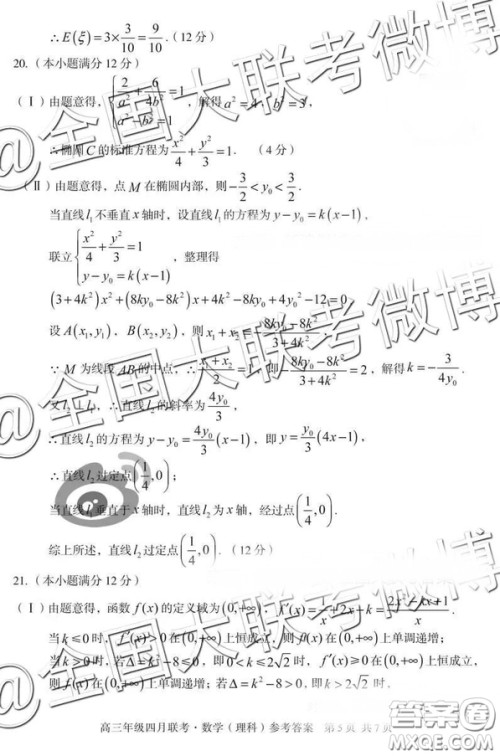 ∴E(ξ)=3×3/10=9/10.(12分)
20.(本小题满分12分)
(Ⅰ)由题意得,{2/a²+6/4b²=1 a²-b²=1,解得a²=4,b²=3,
∴椭圆C的标准方程为x²/4+y²/3=1. (4分)
(Ⅱ)由题意得,点M在椭圆内部,则-3/2<y₀<3/2.
当直线l₁不垂直x轴时,设直线l₁的方程为y-y₀=k(x-1),
联立{x²/4+y²/3=1 y-y₀=k(x-1),整理得
(3+4k²)x²+(8ky₀-8k²)x+4k²-8ky₀+4y₀²-12=0
设A(x₁,y₁),B(x₂,y₂),则x₁+x₂=-(8ky₀-8k²)/(3+4k²)
∵M为线段AB的中点,∴(x₁+x₂)/2=1,即-(8ky₀-8k²)/(3+4k²)=2,解得k=-3/4y₀
又l₁⊥l₂,∴直线l₂的斜率为4y₀/3
∴直线l₂的方程为y-y₀=4y₀/3(x-1),即y=y₀/3(4x-1),
∴直线l₂过定点(1/4,0);
当直线l₁垂直于x轴时,直线l₂为x轴,经过点(1/4,0).
综上所述,直线l₂过定点(1/4,0).(12分)
21.(本小题满分12分)
(Ⅰ)由题意得,函数f(x)的定义域为(0,+∞),f′(x)=1/x+2x+k=(2x²+kx+1)/x
当k≤0时,f′(x)>0在(0,+∞)上恒成立,则f(x)在(0,+∞)上单调递增;
当k>0时,若Δ=k²-8≤0,即0<k≤2√2时,f′(x)>0在(0,+∞)上恒成立,
则f(x)在(0,+∞)上单调递增;若Δ=k²-8>0,即k>2√2时,
高三年级四月联考·数学(理科)参考答案 第5页 共7页
@全国大联考微博
@全国大联考微博